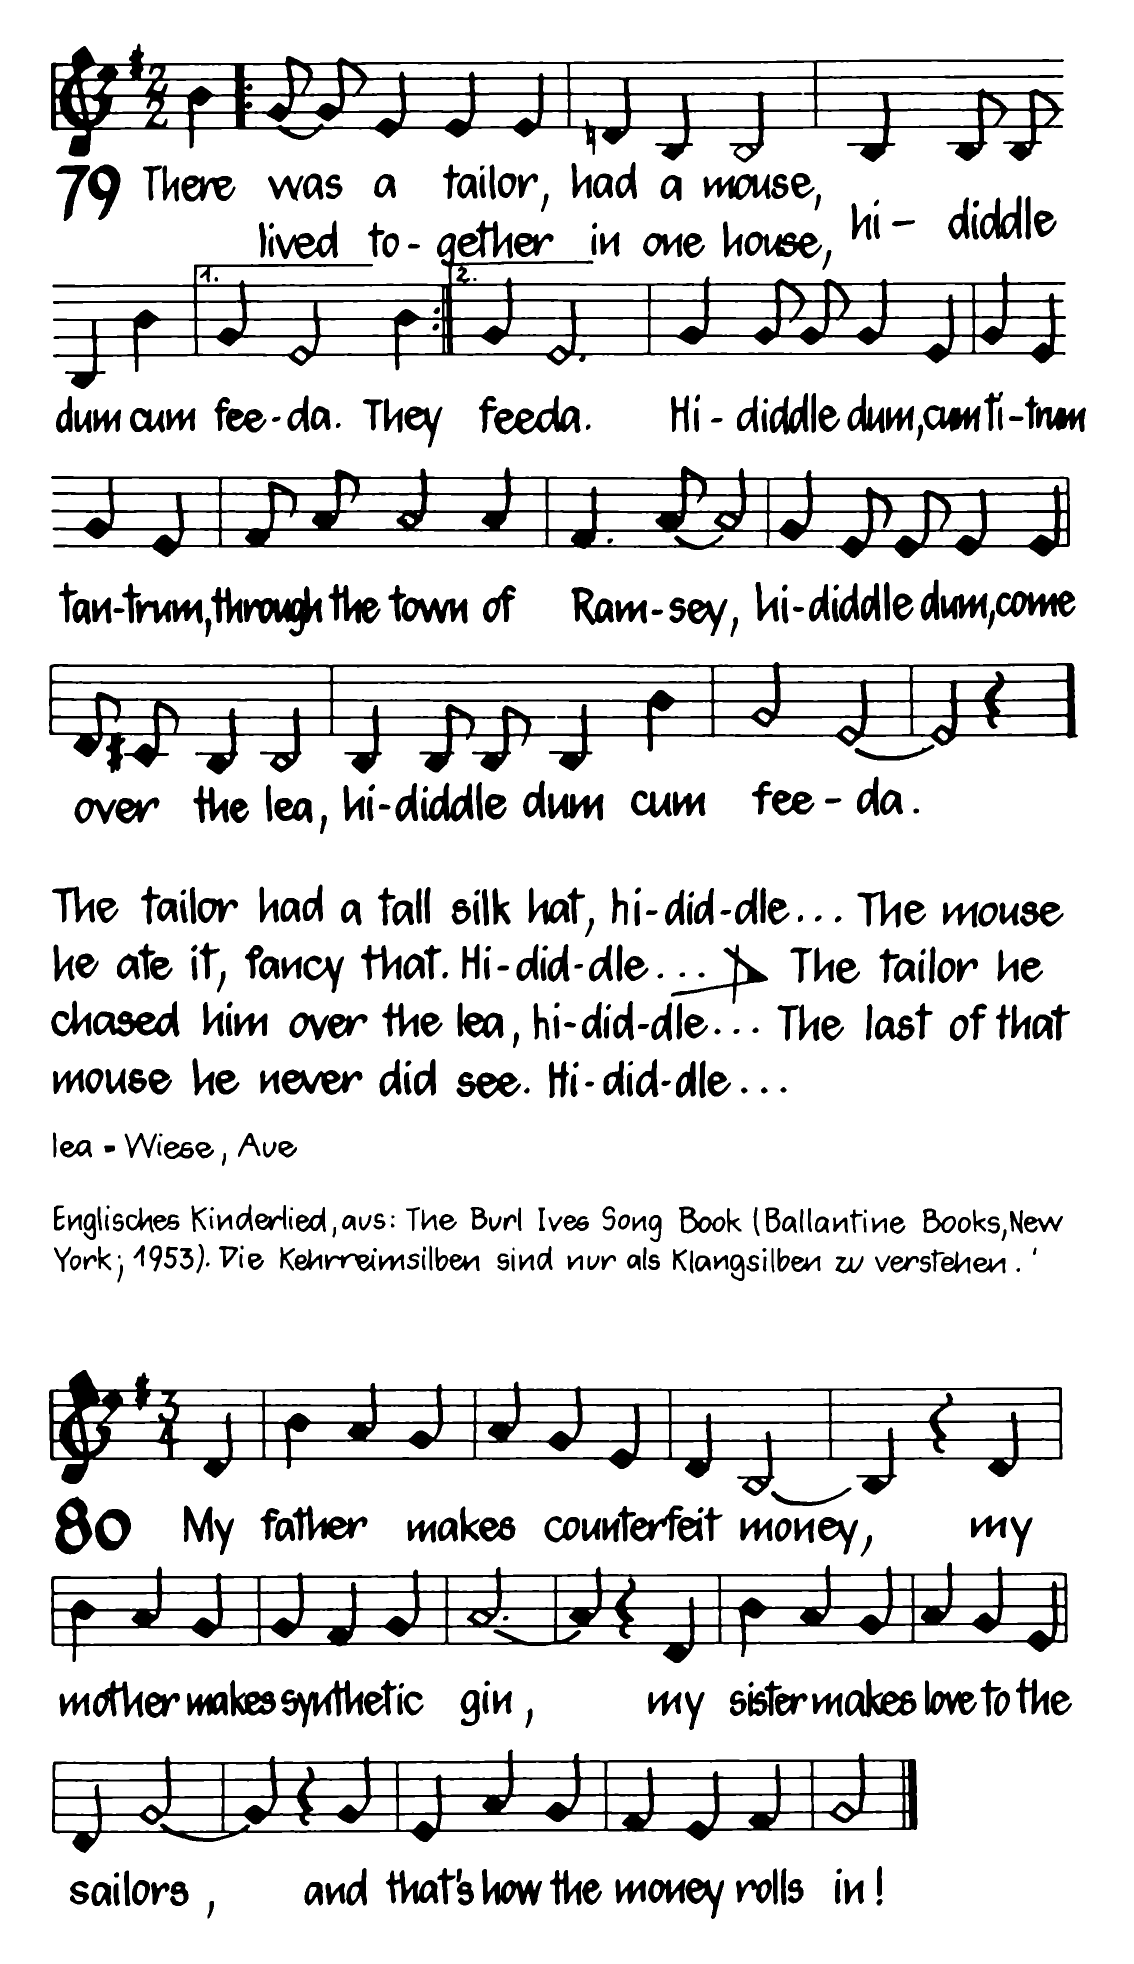 79 There was a tailor, had a mouse,
lived to-gether in one house, hi- diddle
1. 2.
dum cum fee-da. They feeda. Hi-diddle dum, cum ti-trum
tan-trum, through the town of Ram-sey, hi-diddle dum, come
over the lea, hi-diddle dum cum fee-da.
The tailor had a tall silk hat, hi-did-dle... The mouse
he ate it, fancy that. Hi-did-dle... The tailor he
chased him over the lea, hi-did-dle... The last of that
mouse he never did see. Hi-did-dle...
lea - Wiese, Aue
Englisches Kinderlied, aus: The Burl Ives Song Book (Ballantine Books, New
York; 1953). Die Kehrreimsilben sind nur als Klangsilben zu verstehen.
3/4
80 My father makes counterfeit money, my
mother makes synthetic gin, my sister makes love to the
sailors, and that's how the money rolls in!